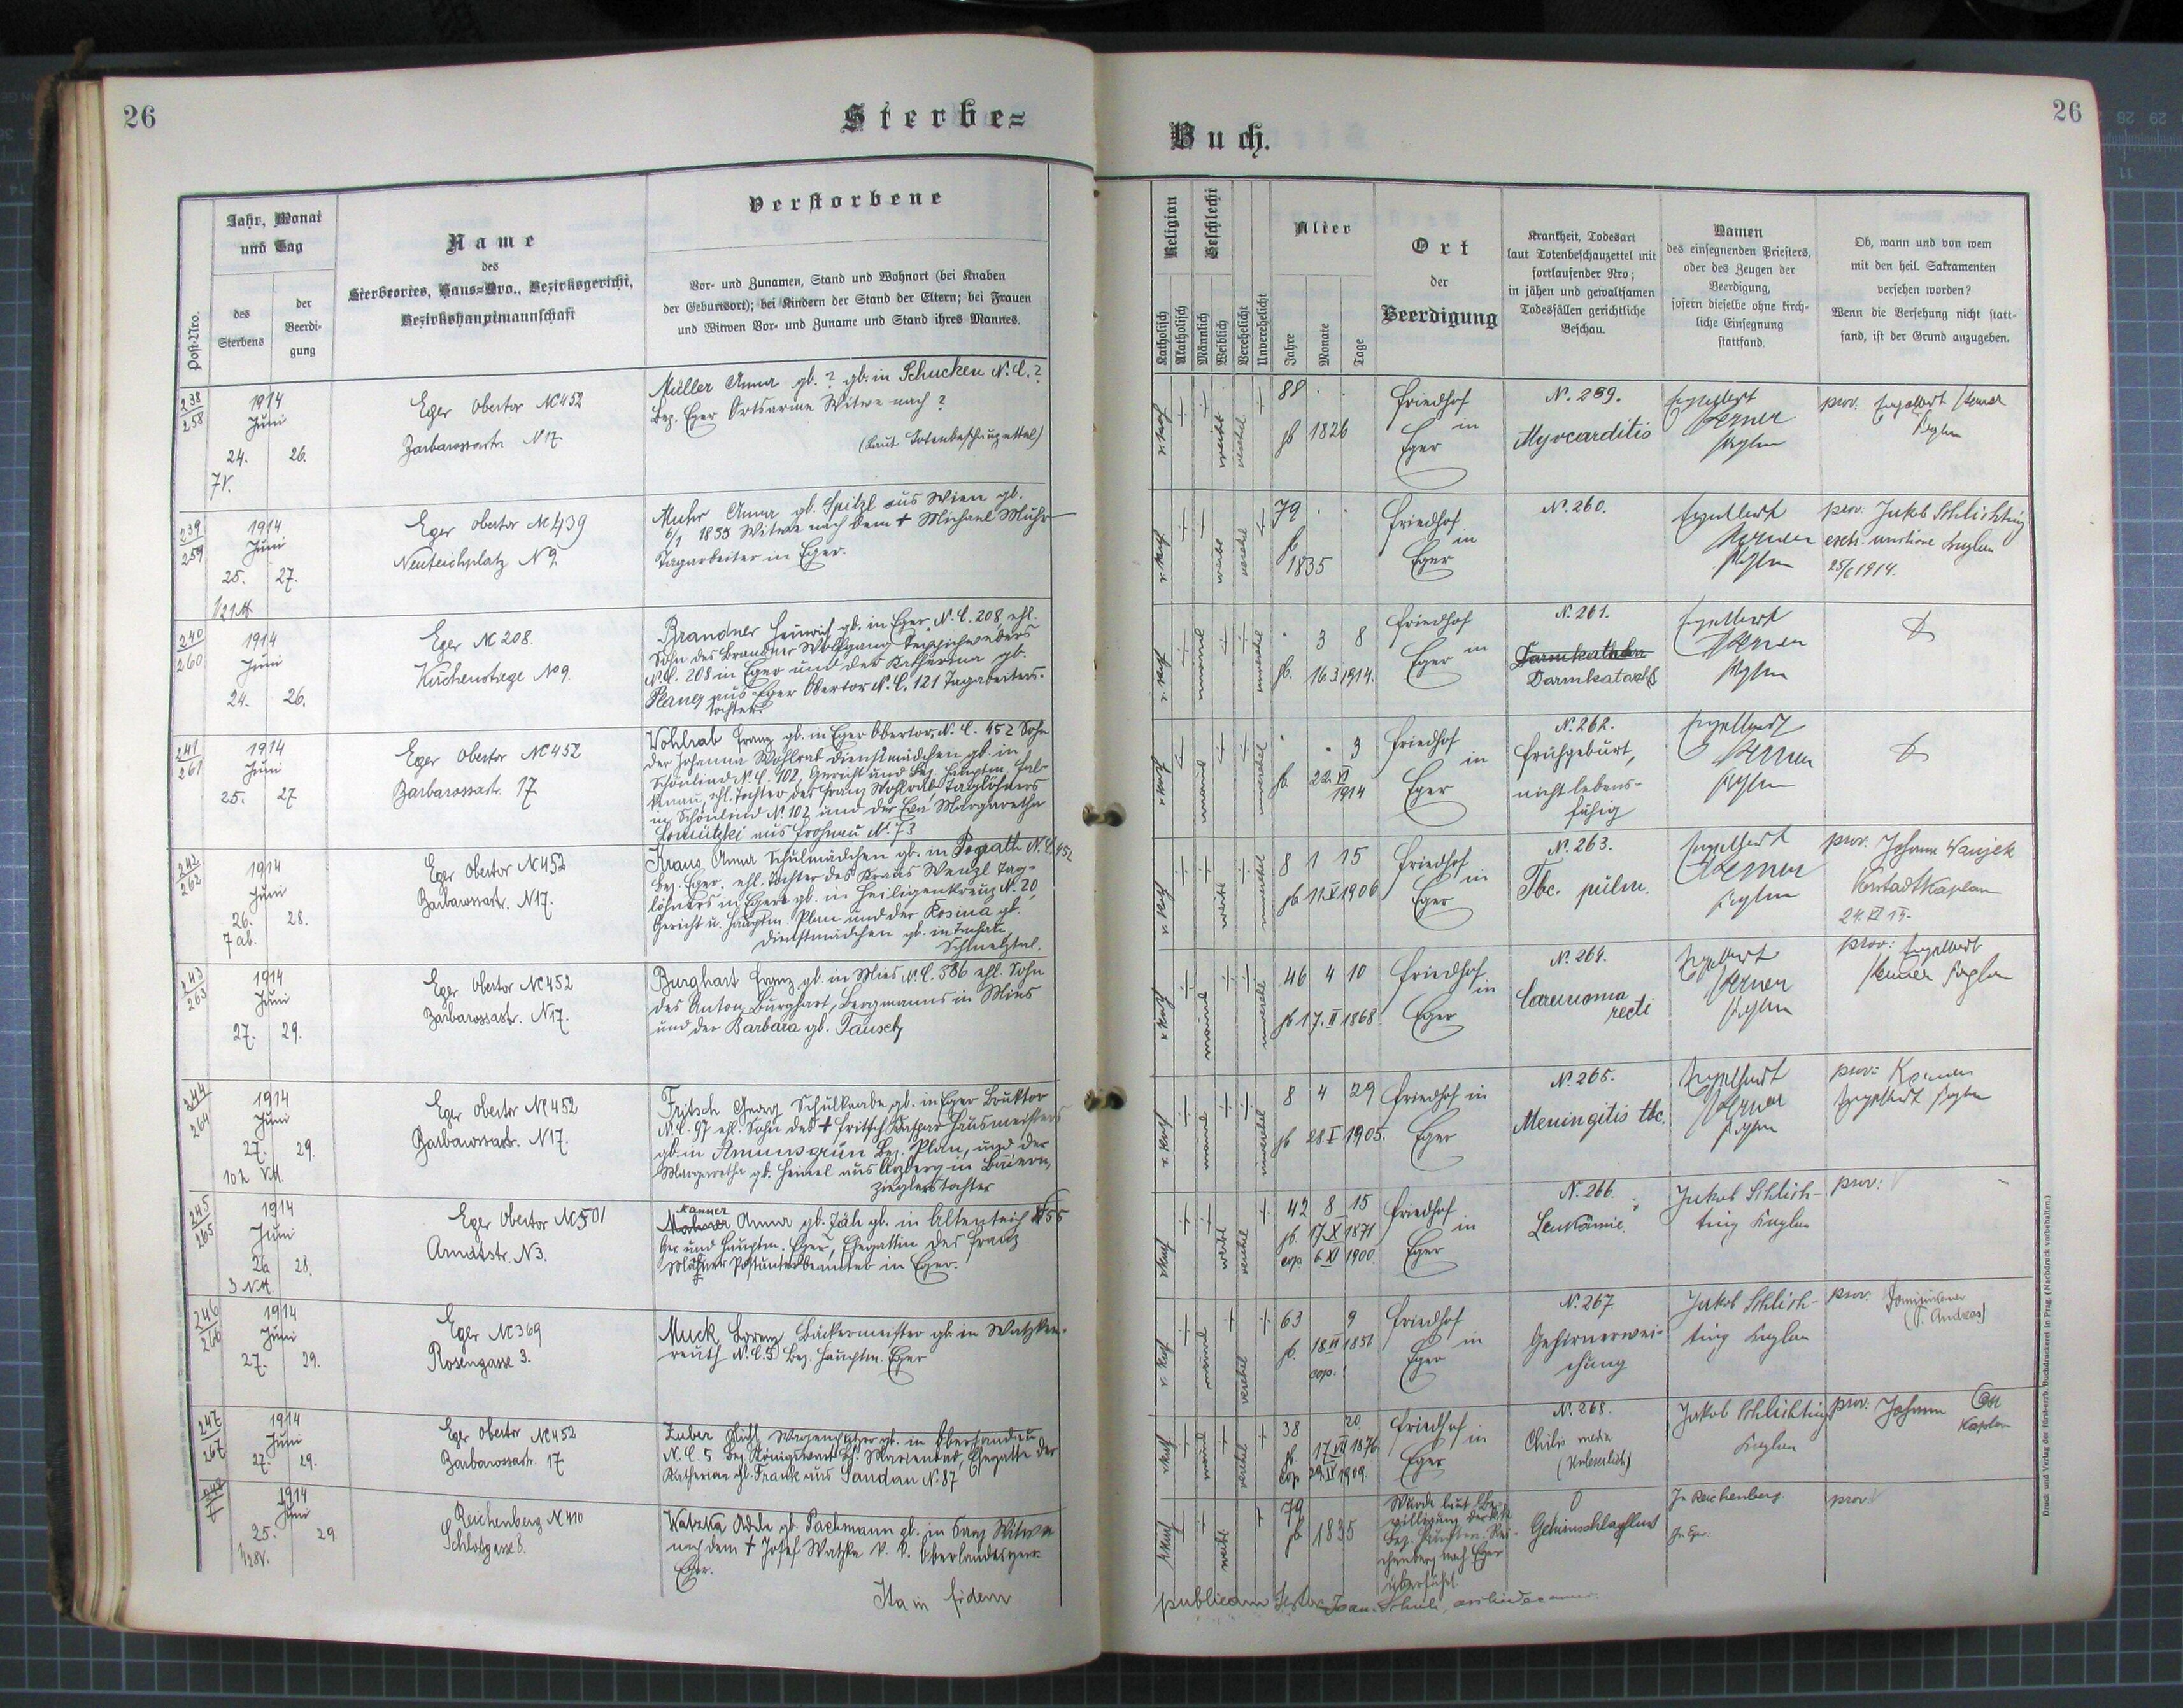 26
Sterbe=
Jahr, Monat
und Tag
Verstorbene
Name
des
Sterbeortes, Haus=Nro., Bezirksgericht,
Bezirkshauptmannschaft
Post-Nro.
des
Sterbens
der
Beerdi-
gung
Vor- und Zunamen, Stand und Wohnort (bei Knaben
der Geburtsort); bei Kindern der Stand der Eltern; bei Frauen
und Witwen Vor- und Zuname und Stand ihres Mannes.
238
258
1914
Juni
24. 26.
7 V.
Eger Obertor NC 452
Barbarossastr. N 17
Müller Anna gb. ? gb. in Schucken N.C. ?
Bez. Eger Ortsarme Witwe nach ?
(Laut Totenbeschauzettel)
239
259
1914
Juni
25. 27.
Eger Obertor NC 439
Neuteichplatz N 2
Muhr Anna gb. Spitzl aus Wien gb.
6/1 1835 Witwe nach dem + Michael Muhr
Tagarbeiter in Eger.
240
260
1914
Juni
24. 26.
Eger NC 208.
Kirchenstiege No 9.
Brandner Heinrich gb. in Eger N.C. 208, ehl.
Sohn des Brandner Wolfgang Teppichwebers
N.C. 208 in Eger und der Katharina gb.
Plang aus Eger Obertor N.C. 121 Tagarbeiters-
tochter.
241
261
1914
Juni
25. 27
Eger Obertor NC 452
Barbarossastr. 17
Wohlrab Franz gb. in Eger Obertor, N.C. 452 Sohn
der Johanna Wohlrab Dienstmädchen gb. in
Schönlind N.C. 102, Gericht und Bez. Hauptm. Fal-
kenau, ehl. Tochter des Franz Wohlrab Taglöhners
in Schönlind N. 102 und der Eva Margaretha
aus Frohnau N. 73
242
262
1914
Juni
26. 28.
7 ab.
Eger Obertor NC 452
Barbarossastr. N 17.
Kraus Anna Schulmädchen gb. in Pograth N.C. 452
Bez. Eger. ehl. Tochter des Kraus Wenzl Tag-
löhners in Eger gb. in Heiligenkreuz N. 20,
Gericht u. Hauptm. Plan und der Rosina gb.
Dienstmädchen gb. in
Schmelztal.
243
263
1914
Juni
27. 29.
Eger Obertor NC 452
Barbarossastr. N 17.
Burghart Franz gb. in Mies N.C. 386 ehl. Sohn
des Anton Burghart, Bergmanns in Mies
und der Barbara gb. Tausch
244
264
1914
Juni
27. 29.
10 h V.M.
Eger Obertor NC 452
Barbarossastr. N 17.
Fritsch Georg Schulknabe gb. in Eger Bruktor
N.C. 97 ehl. Sohn des + Fritsch Kaspar Hausmeisters
gb. in Ammonsgrün Bez. Plan, und der
Margaretha gb. Heinel aus Arzberg in Baiern,
Zieglerstochter
245
265
1914
Juni
26 28.
3 N.M.
Eger Obertor NC 501
Arndtstr. N 3.
Manner
Anna gb. Jäh gb. in Altenteich N 55
Ger. und Hauptm. Eger, Ehegattin des Franz
Postunterbeamter in Eger.
246
266
1914
Juni
27. 29.
Eger NC 369
Rosengasse 3.
Muck Lorenz Bäckermeister gb. in Watzken-
reuth N.C. 5 Bez. Hauptm. Eger
247
267
1914
Juni
27. 29.
Eger Obertor NC 452
Barbarossastr. 17
Zuber gb. in Obersandau
N.C. 5 Bez. Königswart Bh. Marienbad, Ehegatte der
Katharina gb. Frank aus Sandau N. 87
1914
Juni
25. 29
1/2 8 V.
Reichenberg N 410
Schlossgasse 8.
Watzka Adele gb. Pachmann gb. in Witwe
nach dem + Josef Watzka k. k. Oberlandesger.
Eger.
Ita in fidem
26
Buch.
Religion
Katholisch
Akatholisch
Geschlecht
Männlich
Weiblich
Verehelicht
Unverehelicht
Alter
Jahre
Monate
Tage
Ort
der
Beerdigung
Krankheit, Todesart
laut Totenbeschauzettel mit
fortlaufender Nro;
in jähen und gewaltsamen
Todesfällen gerichtliche
Beschau.
Namen
des einsegnenden Priesters,
oder des Zeugen der
Beerdigung,
sofern dieselbe ohne kirch-
liche Einsegnung
stattfand.
Ob, wann und von wem
mit den heil. Sakramenten
versehen worden?
Wenn die Versehung nicht statt-
fand, ist der Grund anzugeben.
88
gb 1826
Friedhof
in
Eger
N. 259.
Myocarditis
Engelbert
Kerner
Kaplan
prov. Engelbert Kerner
Kaplan
79
gb
1835
Friedhof
in
Eger
N. 260.
Engelbert
Kerner
Kaplan
prov. Jakob Schlichting
extr. unctione Kaplan
25/6 1914.
3 8
gb. 16.3.1914.
Friedhof
in
Eger
N. 261.
Darmkatarrh
Engelbert
Kerner
Kaplan
3
gb. 22. VI
1914
Friedhof
in
Eger
N. 262.
Frühgeburt,
nicht lebens-
fähig
Engelbert
Kerner
Kaplan
8 1 15
gb 11. V 1906
Friedhof
in
Eger
N. 263.
Tbc. pulm.
Engelbert
Kerner
Kaplan
prov. Johann Wanjek
Vorstadtkaplan
46 4 10
gb 17. II 1868
Friedhof
in
Eger
N. 264.
Carcinoma
recti
Engelbert
Kerner
Kaplan
prov: Engelbert
Kerner Kaplan
8 4 29
gb 28. I 1905.
Friedhof in
Eger
N. 265.
Meningitis tbc.
Engelbert
Kerner
Kaplan
prov: Kerner
Engelbert Kaplan
42 8 15
gb. 17. X 1871
cop. 6. XI 1900.
Friedhof
in
Eger
N. 266.
Leukämie.
Jakob Schlich-
ting Kaplan
prov:
63 9
gb. 18. VI 1851
cop.:
Friedhof
in
Eger
N. 267.
Gehirnerwei-
chung
Jakob Schlich-
ting Kaplan
prov. Dominikaner
(P. Andreas)
38 20
gb. 17. VII 1876
cop 29. IV 1909.
Friedhof
in
Eger
N. 268.
(Unleserlich)
Jakob Schlichting
Kaplan
prov: Johann Ott
Kaplan
79
gb 1835
Wurde laut Be-
willigung der k. k.
Bez. Hauptm. Rei-
chenberg nach Eger
überführt.
Gehirnschlagfluss
In Reichenberg.
In Eger:
prov:
publicam
Druck und Verlag der fürst-erzb. Buchdruckerei in Prag. (Nachdruck vorbehalten.)